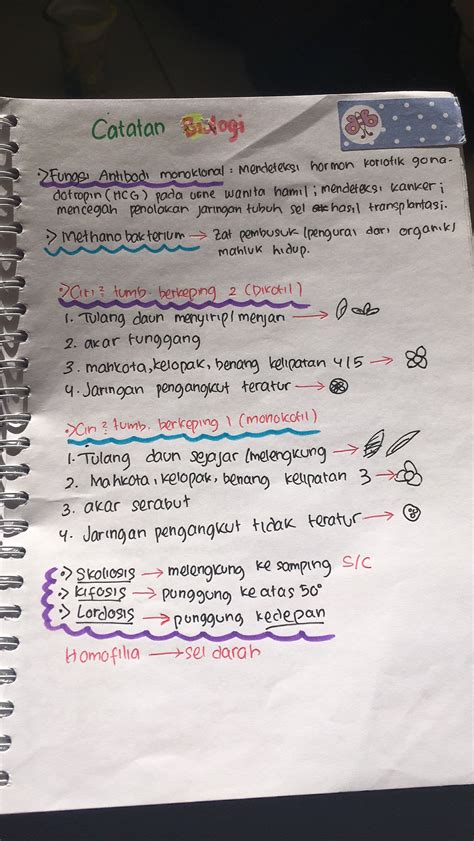 Catatan Biologi
•> Fungsi Antibodi monoklonal : Mendeteksi hormon koriotik gona-
dotropin (HCG) pada urine wanita hamil ; mendeteksi kanker ;
mencegah penolakan jaringan tubuh sel hasil transplantasi.
•> Methano bakterium → Zat pembusuk / pengurai dari organik /
mahluk hidup.
•> Ciri² tumb. berkeping 2 (Dikotil)
1. Tulang daun menyirip / menjari →
2. akar tunggang
3. mahkota, kelopak, benang kelipatan 4/5 →
4. Jaringan pengangkut teratur →
•> Ciri² tumb. berkeping 1 (monokotil)
1. Tulang daun sejajar / melengkung →
2. Mahkota, kelopak, benang kelipatan 3 →
3. akar serabut
4. Jaringan pengangkut tidak teratur →
•> Skoliosis → melengkung ke samping S/C
•> Kifosis → punggung ke atas 50°
•> Lordosis → punggung kedepan
Homofilia → sel darah